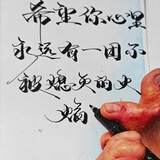 希望你心里
永远有一团不
被熄灭的火
焰